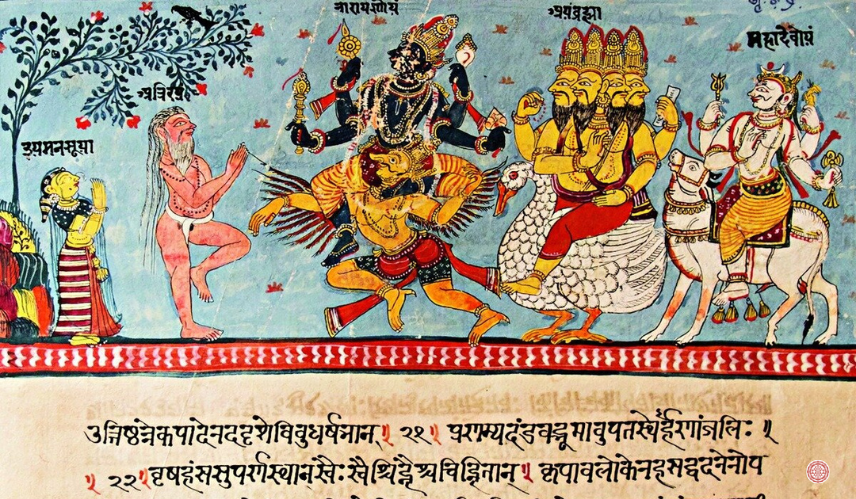 नारायणोयं
अयंब्रह्मा
महादेवोयं
अत्रिरयं
इयमनसूया
उत्तिष्ठंनेकपादेनददृशेविबुधर्षभान् ॥ २१॥ प्रणम्यदंडवद्भूमावुपतस्थेर्हणांजलिः ॥
॥ २२॥ वृषहंससुपर्णस्थान्स्वैः स्वैश्चिह्नैश्चचिह्नितान् ॥ कृपावलोकेनहसद्वदनेनोप